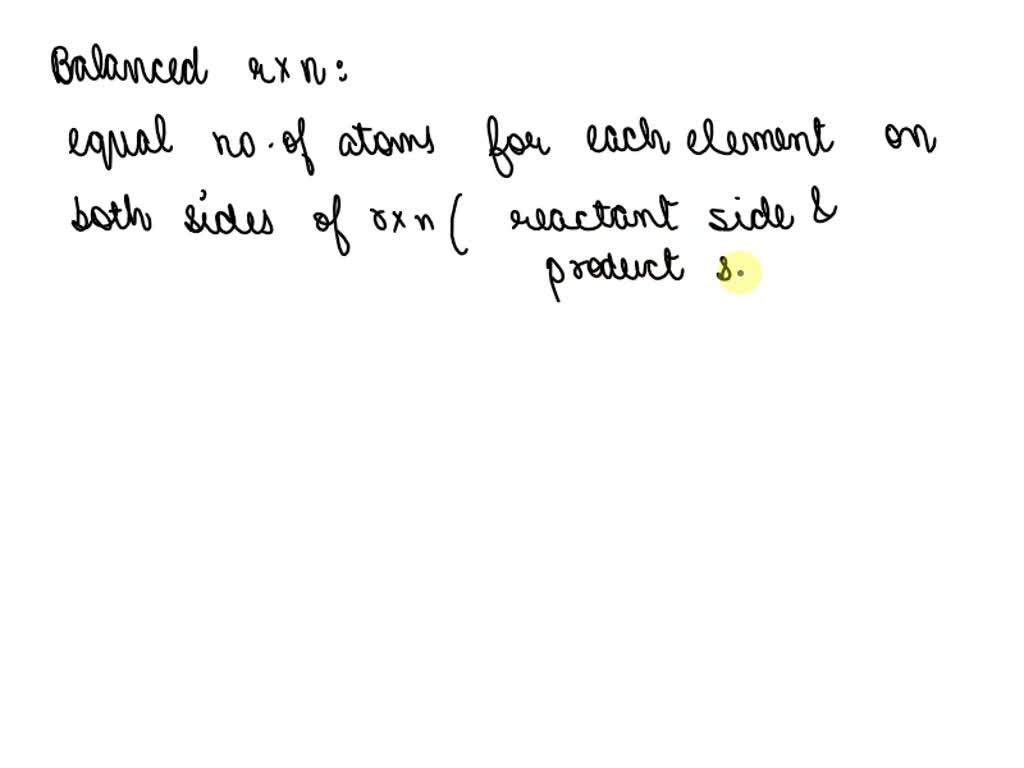 Balanced rxn:
equal no. of atoms for each element on
both sides of rxn ( reactant side &
product s.